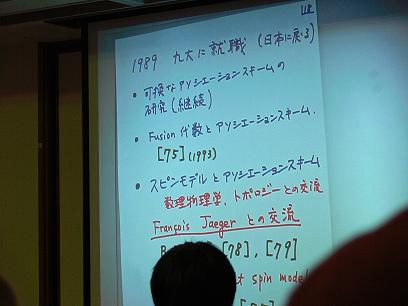 1989 九大に就職 (日本に戻る)
• 可換なアソシエーションスキームの
研究(継続)
• Fusion 代数とアソシエーションスキーム.
[75] (1993)
• スピンモデルとアソシエーションスキーム
数理物理学, トポロジーとの交流
François Jaeger との交流
[78], [79]
spin